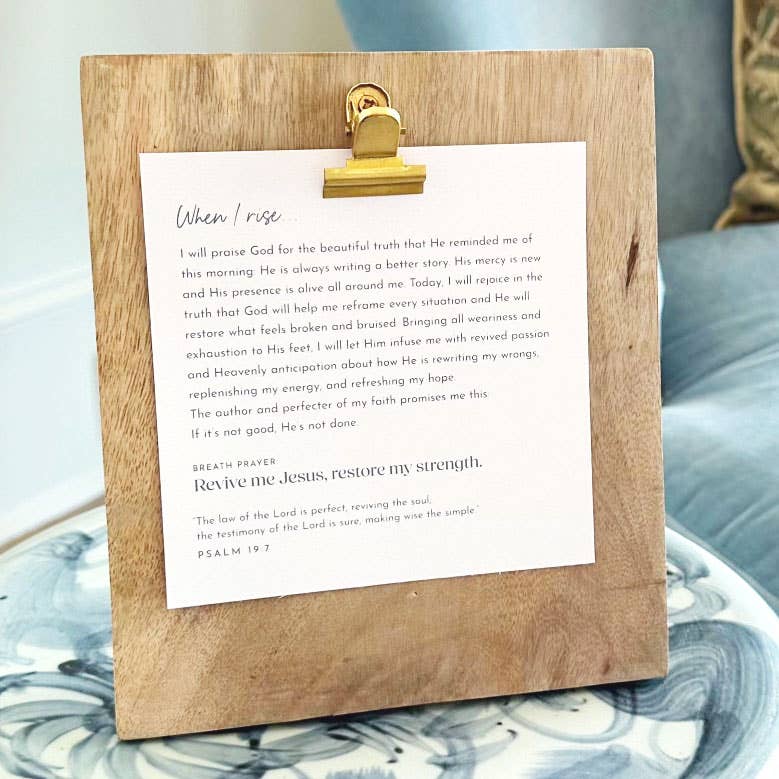 When I rise...
I will praise God for the beautiful truth that He reminded me of
this morning: He is always writing a better story. His mercy is new
and His presence is alive all around me. Today, I will rejoice in the
truth that God will help me reframe every situation and He will
restore what feels broken and bruised. Bringing all weariness and
exhaustion to His feet, I will let Him infuse me with revived passion
and Heavenly anticipation about how He is rewriting my wrongs,
replenishing my energy, and refreshing my hope.
The author and perfecter of my faith promises me this:
If it's not good, He's not done.
BREATH PRAYER
Revive me Jesus, restore my strength.
"The law of the Lord is perfect, reviving the soul;
the testimony of the Lord is sure, making wise the simple."
PSALM 19:7